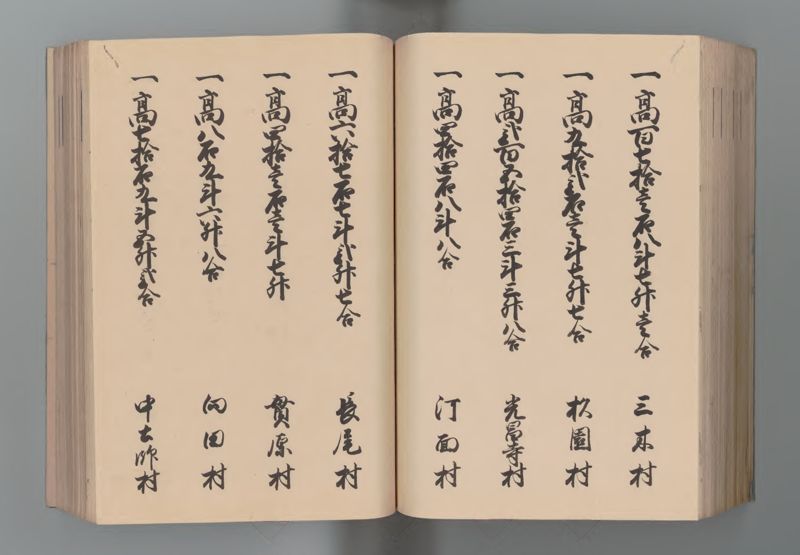 一高百七拾壱石八斗七升壱合 三木村
一高九拾弐石壱斗七升七合 松園村
一高弐百五拾四石三斗三升八合 光昌寺村
一高四拾四石八斗八合 汀面村
一高六拾七石七斗弐升七合 長尾村
一高四拾壱石壱斗七升 貫原村
一高八石九斗六升八合 向田村
一高七拾石九斗五升弐合 中土師村